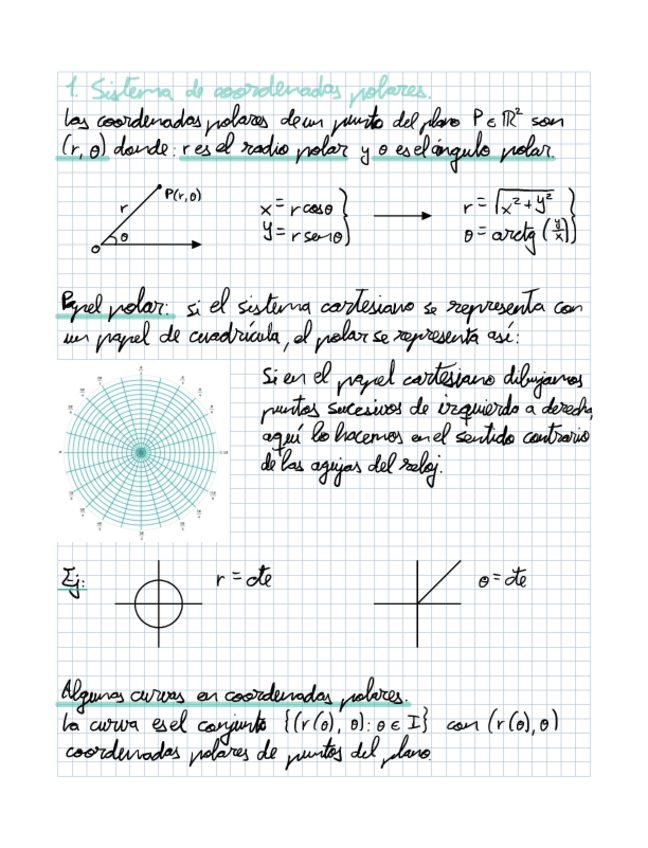 1. Sistema de coordenadas polares.
Las coordenadas polares de un punto del plano P ∈ ℝ² son
(r, θ) donde: r es el radio polar y θ es el ángulo polar.
P(r, θ)
r
θ
O
x = r cosθ
y = r senθ
r = √x² + y²
θ = arctg (y/x)
Papel polar: si el sistema cartesiano se representa con
un papel de cuadrícula, el polar se representa así:
Si en el papel cartesiano dibujamos
puntos sucesivos de izquierda a derecha,
aquí lo hacemos en el sentido contrario
de las agujas del reloj.
Ej:
r = cte
θ = cte
Algunas curvas en coordenadas polares.
La curva es el conjunto {(r(θ), θ): θ ∈ I} con (r(θ), θ)
coordenadas polares de puntos del plano.